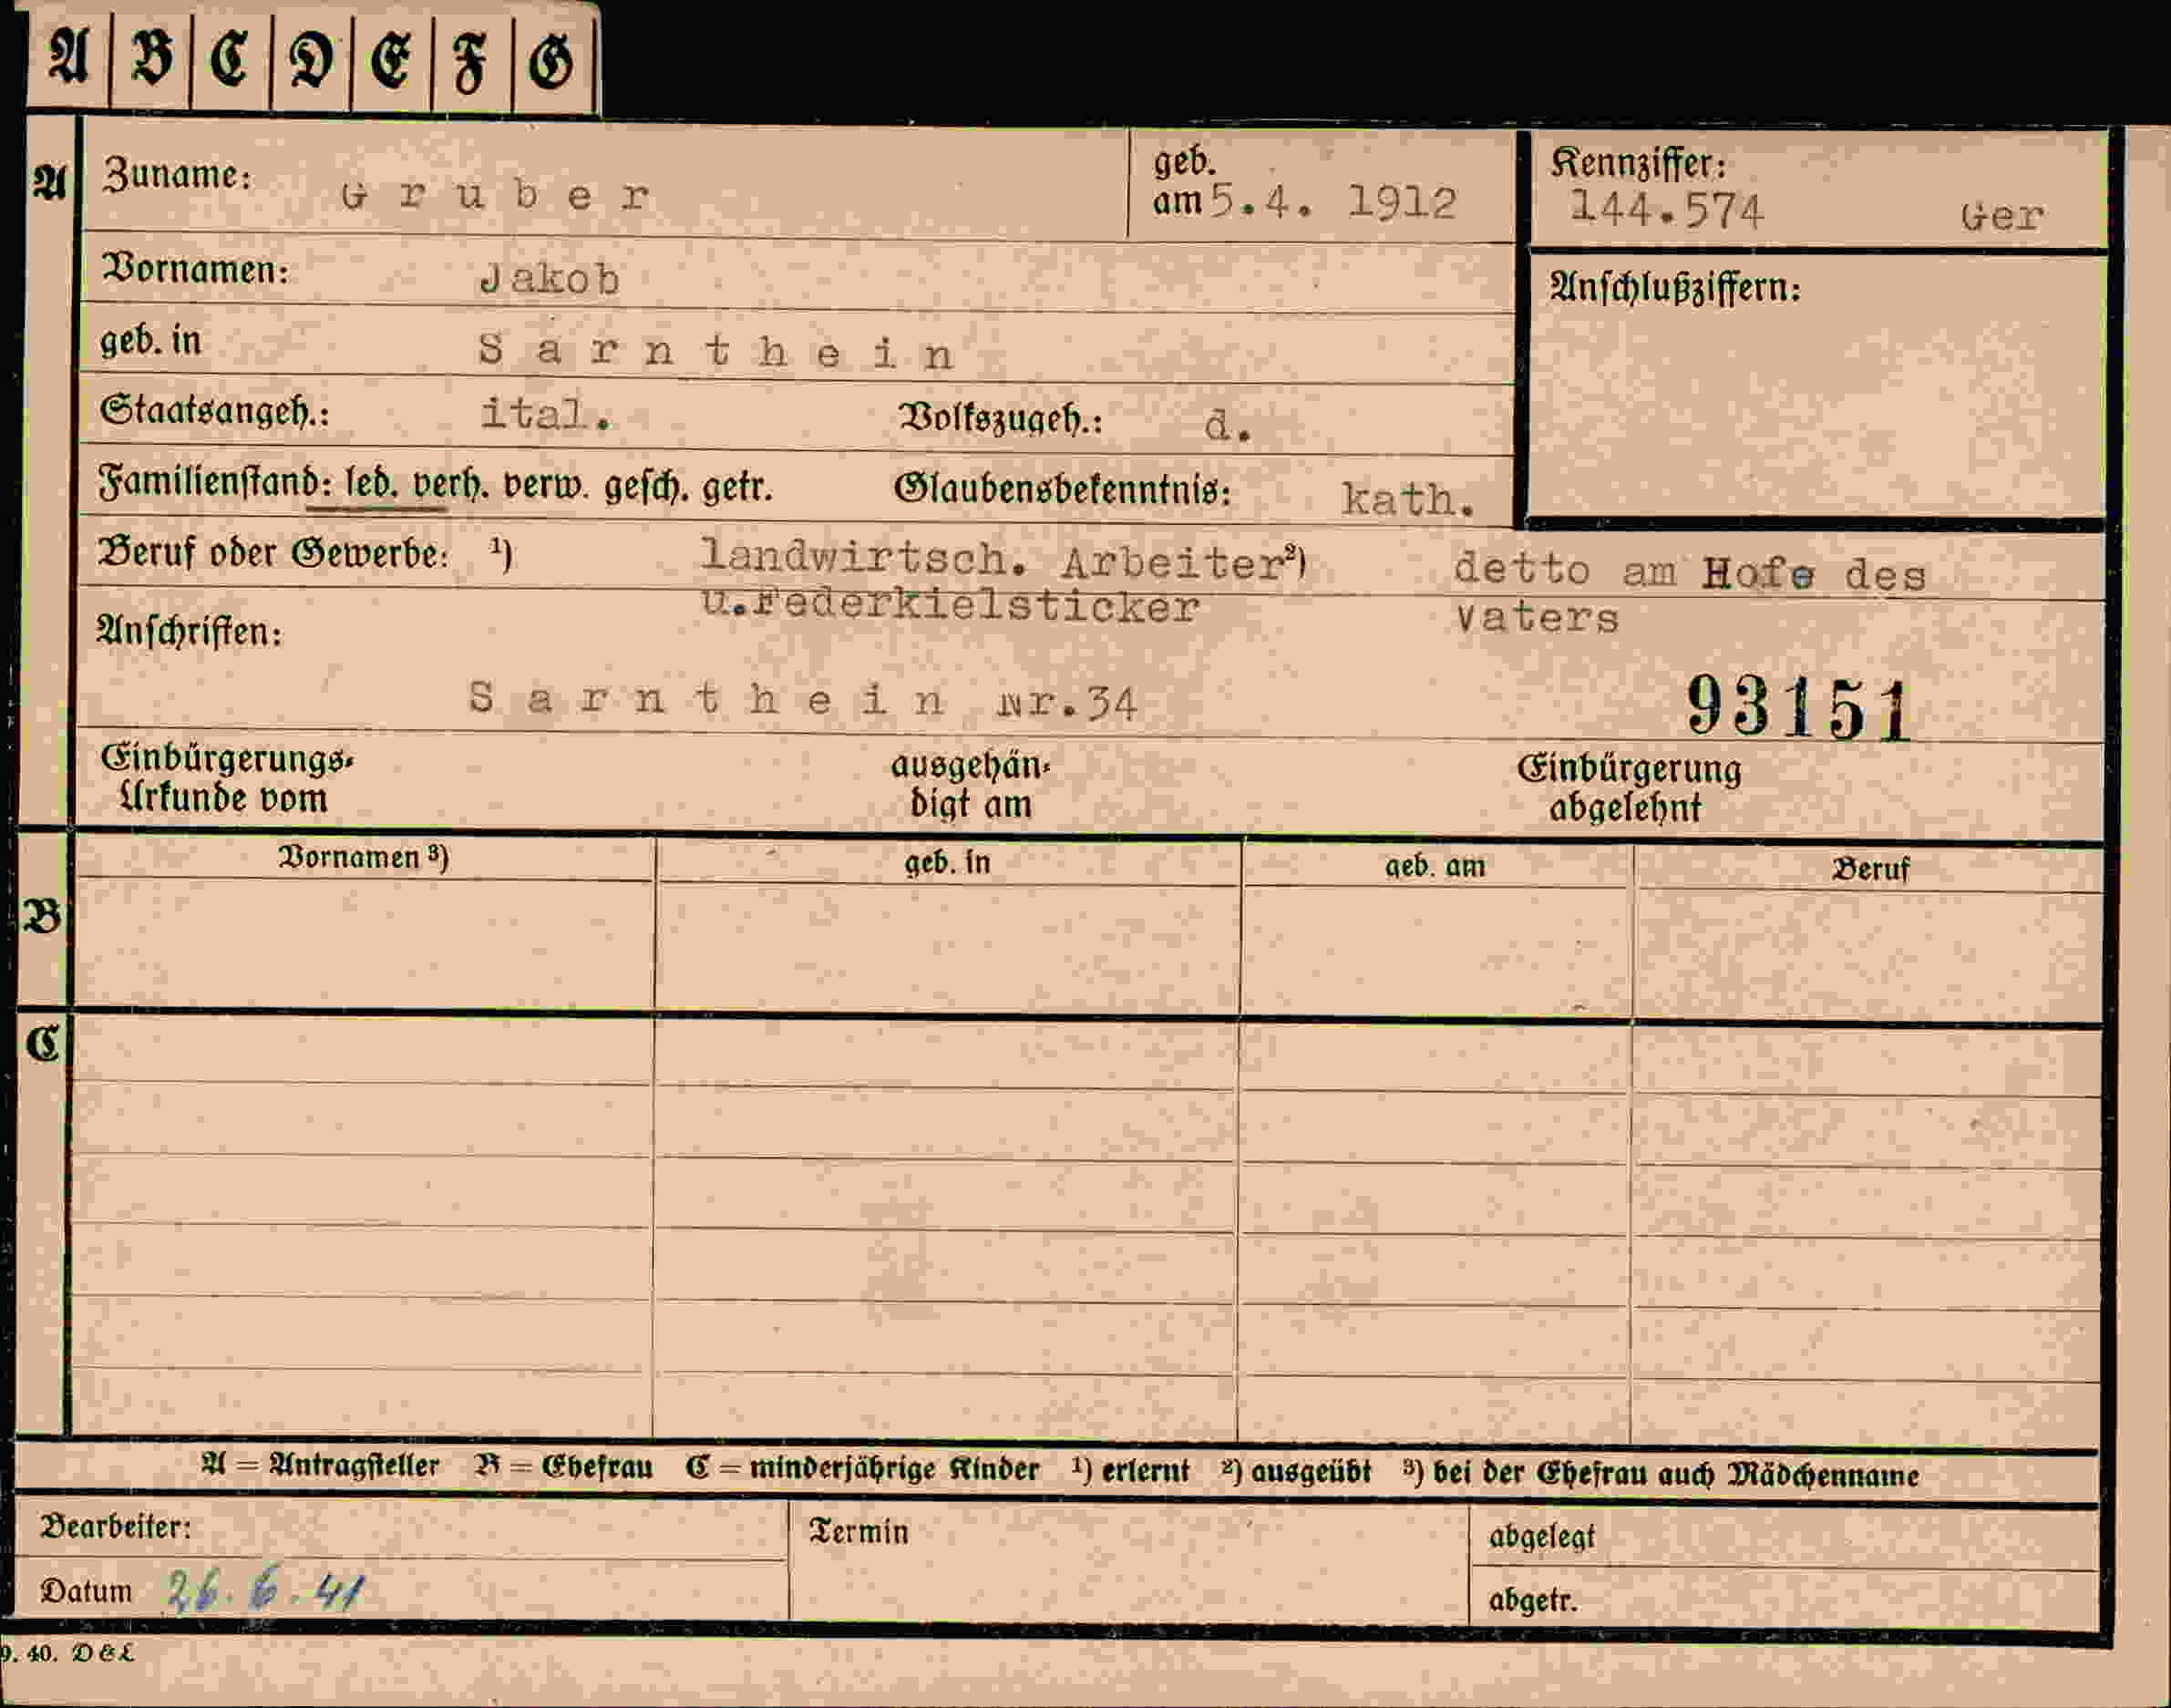 A B C D E F G
A Zuname: Gruber geb. am 5.4. 1912 Kennziffer: 144.574 Ger
Vornamen: Jakob Anschlußziffern:
geb. in Sarnthein
Staatsangeh.: ital. Volkszugeh.: d.
Familienstand: led. verh. verw. gesch. getr. Glaubensbekenntnis: kath.
Beruf oder Gewerbe: ¹) landwirtsch. Arbeiter ²) detto am Hofe des
u.Federkielsticker Vaters
Anschriften:
Sarnthein Nr.34 93151
Einbürgerungs- ausgehän- Einbürgerung
Urkunde vom digt am abgelehnt
Vornamen ³) geb. in geb. am Beruf
B
C
A = Antragsteller B = Ehefrau C = minderjährige Kinder ¹) erlernt ²) ausgeübt ³) bei der Ehefrau auch Mädchenname
Bearbeiter: Termin abgelegt
Datum 26.6.41 abgetr.
9. 40. D & L